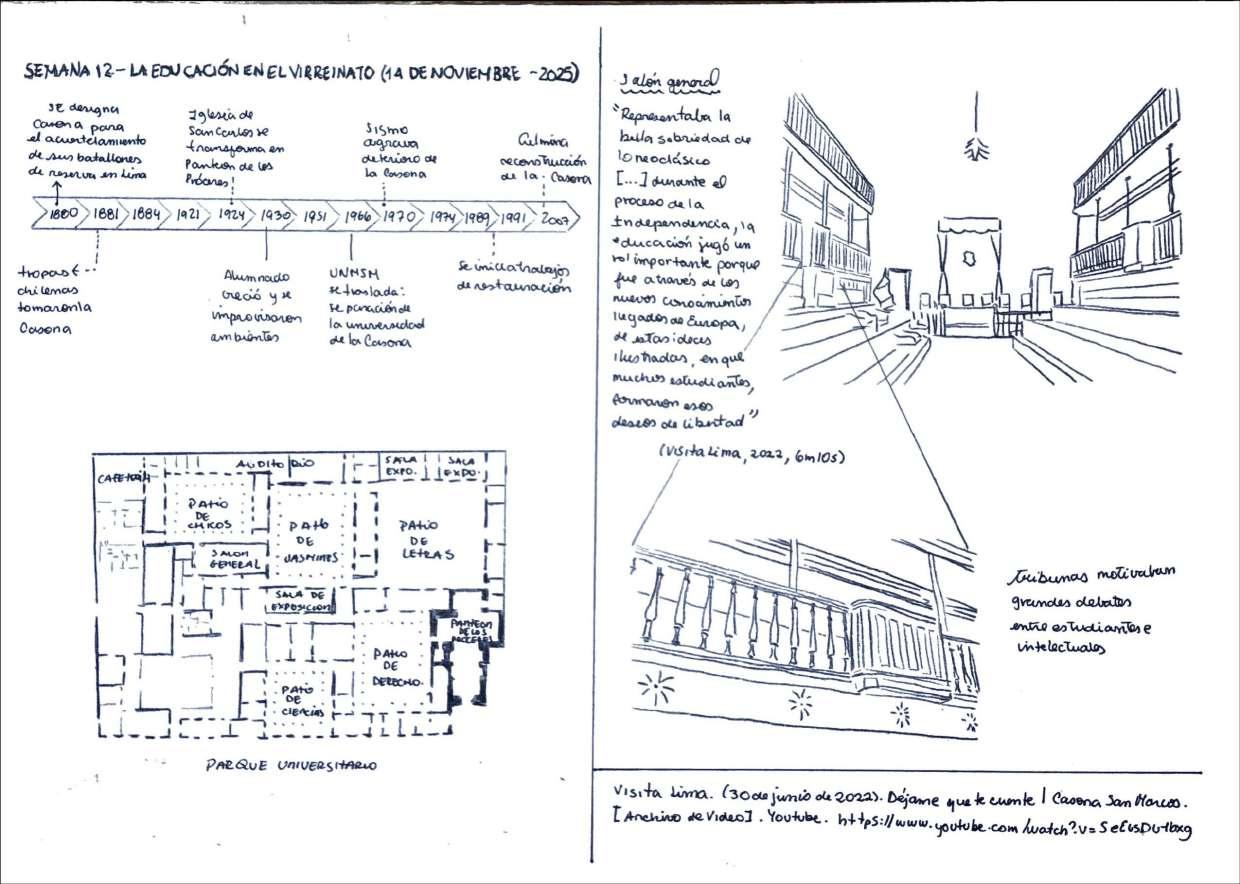 SEMANA 12 – LA EDUCACIÓN EN EL VIRREINATO (14 DE NOVIEMBRE - 2025)
Se designa
Casona para
el acuartelamiento
de sus batallones
de reserva en Lima
Iglesia de
San Carlos se
transforma en
Panteón de los
Próceres
Sismo
agrava
deterioro de
la Casona
Culmina
reconstrucción
de la Casona
1880 1881 1884 1921 1924 1930 1951 1966 1970 1974 1989 1991 2007
tropas
chilenas
tomaron la
Casona
Alumnado
creció y se
improvisaron
ambientes
UNMSM
se traslada:
separación de
la universidad
de la Casona
Se inicia trabajos
de restauración
CAFETERÍA
AUDITORIO
SALA
EXPO.
SALA
EXPO.
PATIO
DE
CHICOS
PATIO
DE
JASMINES
PATIO
DE
LETRAS
SALON
GENERAL
SALA DE
EXPOSICION
PANTEON
DE LOS
PROCERES
PATIO
DE
DERECHO
PATIO
DE
CIENCIAS
PARQUE UNIVERSITARIO
Salón general
"Representaba la
bella sobriedad de
lo neoclásico
[...] durante el
proceso de la
Independencia, la
educación jugó un
rol importante porque
fue a través de los
nuevos conocimientos
legados de Europa,
de estas ideas
ilustradas, en que
muchos estudiantes,
formaron esos
deseos de libertad"
(Visita Lima, 2022, 6m10s)
tribunas motivaban
grandes debates
entre estudiantes e
intelectuales
Visita Lima. (30 de junio de 2022). Déjame que te cuente | Casona San Marcos.
[Archivo de Video]. Youtube. https://www.youtube.com/watch?v=